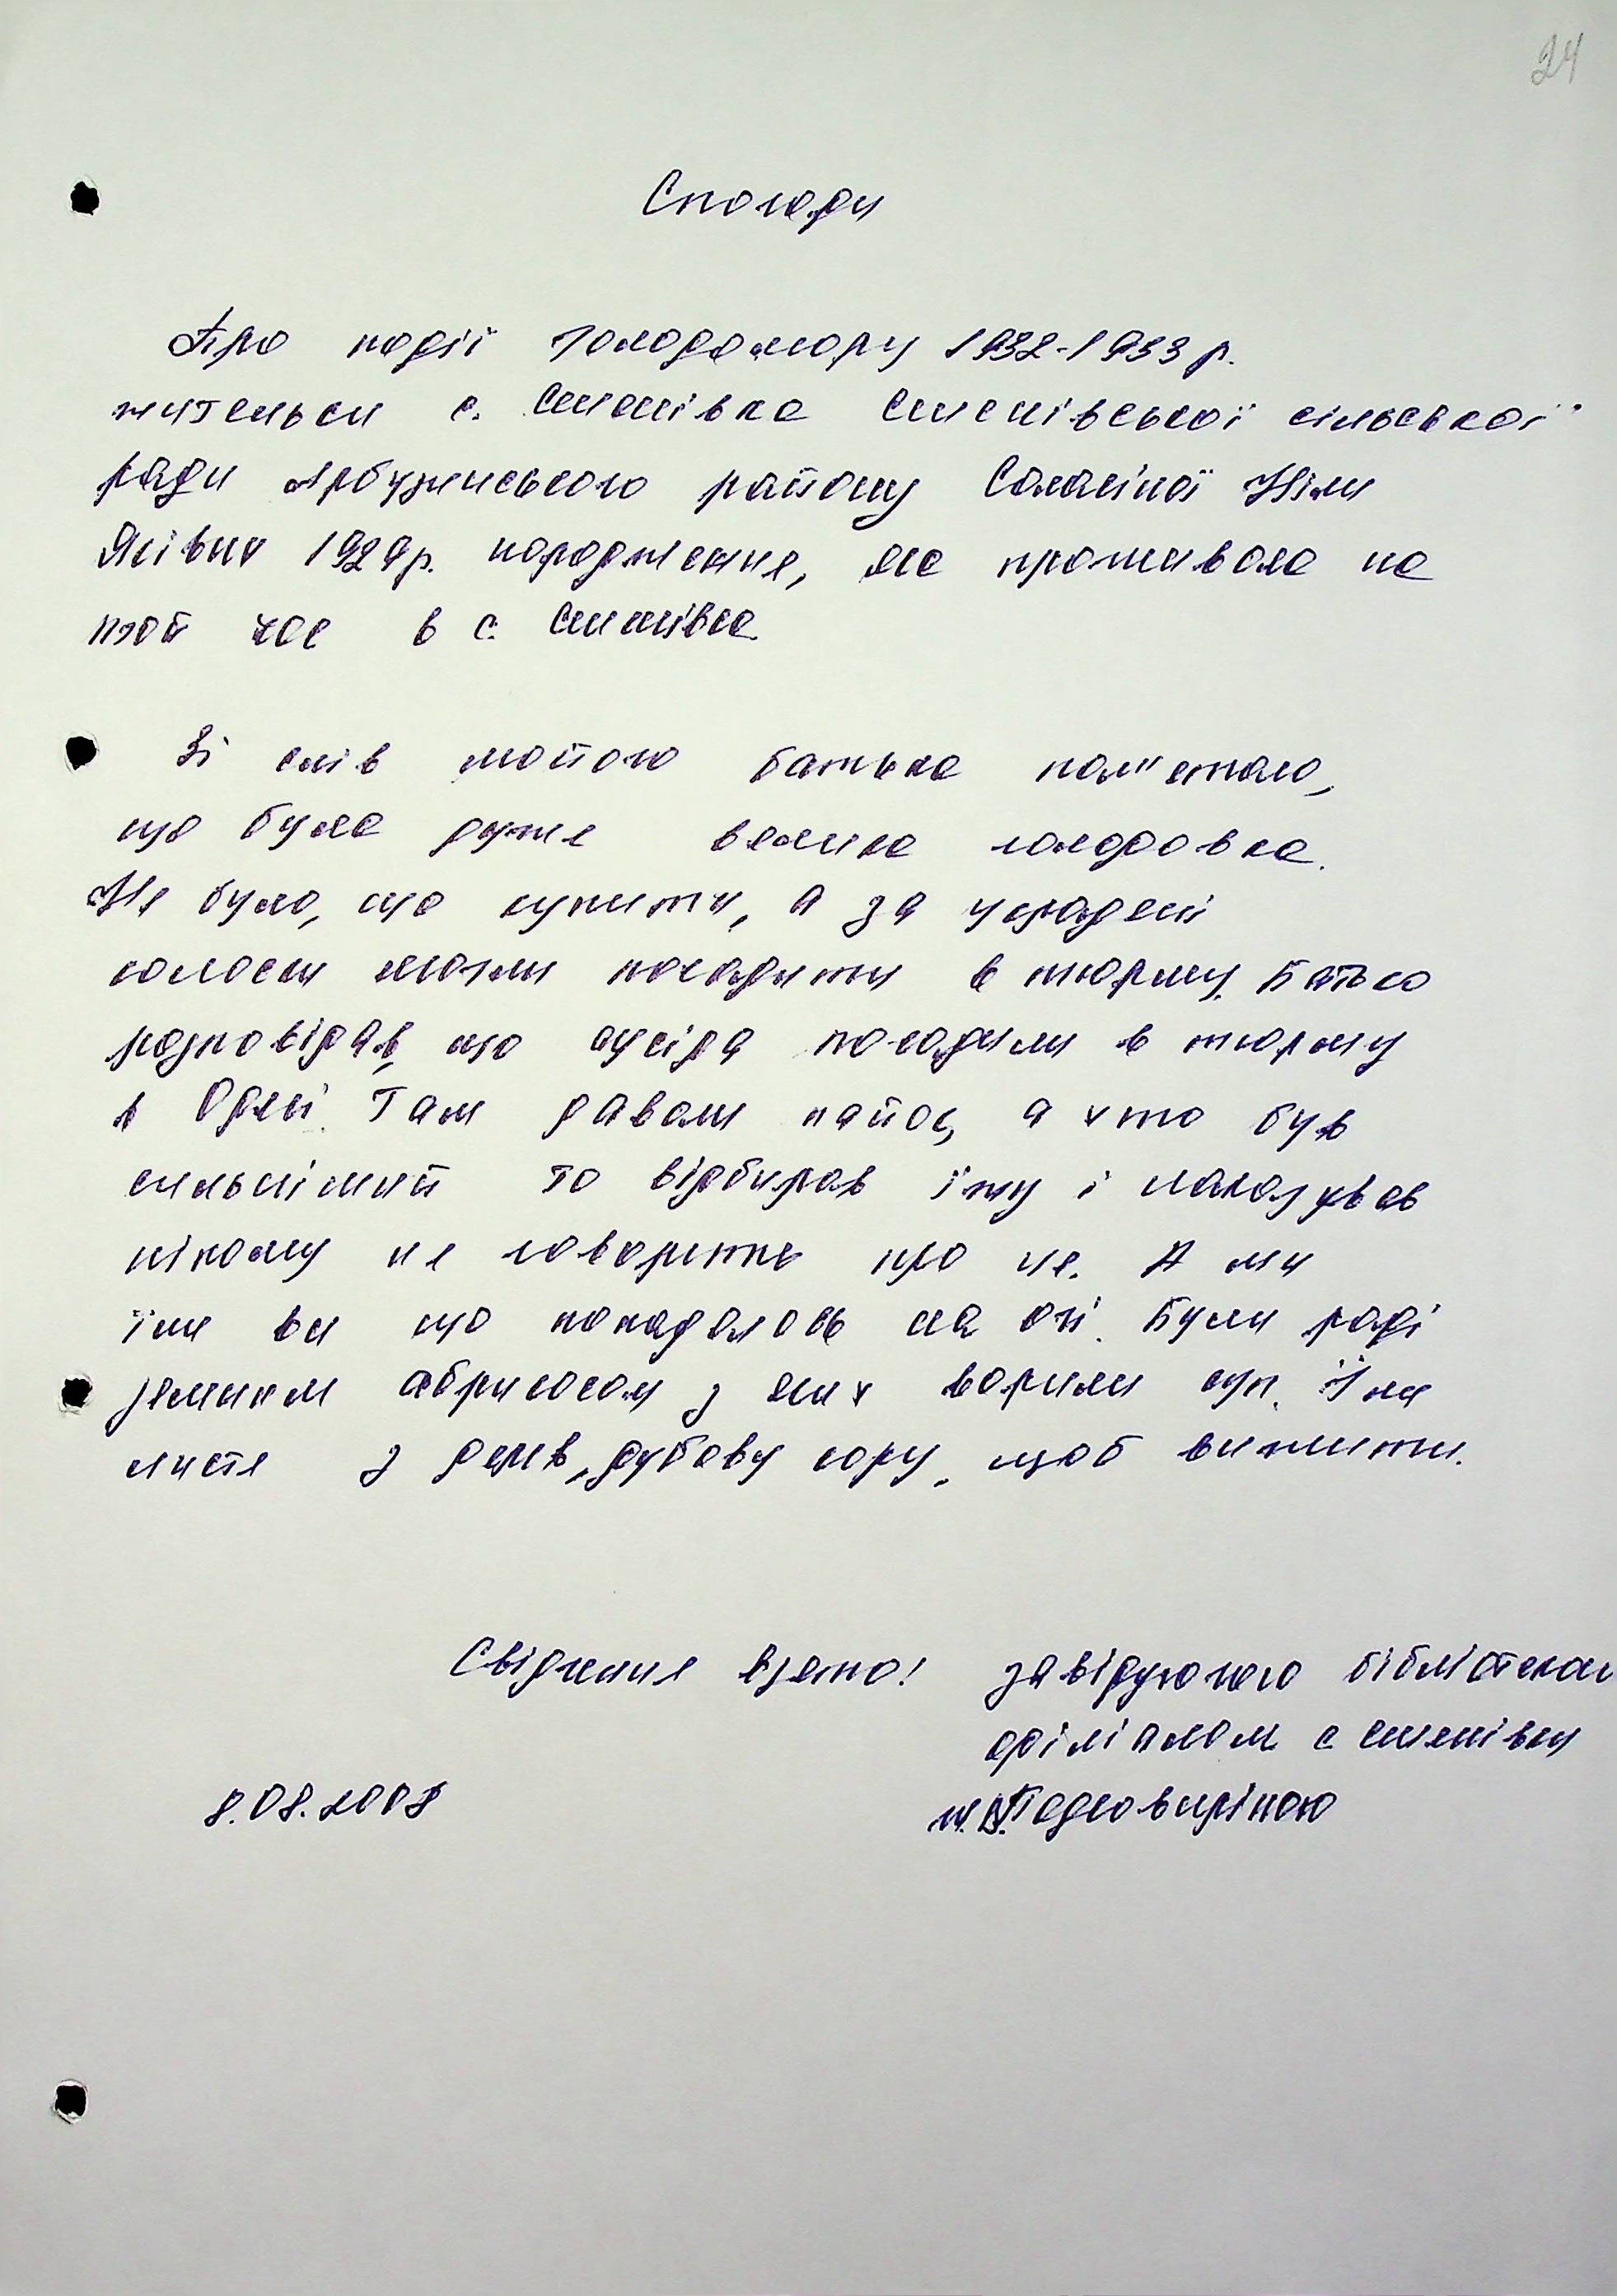 24
Спогади
Про події Голодомору 1932-1933 р.
жительки с. Семенівка Семенівської сільської
ради Арбузинського району Соланіної Ніли
Яківни 1929р. народження, яка проживала на
той час в с. Семенівка
Зі слів мойого батька пам"ятаю,
що була дуже велика голодовка.
Не було, що купити, а за украдені
колоски могли посадити в тюрму. Батько
розповідав, що сусіда посадили в тюрму
в Одесі. Там давали пайок, а хто був
сильніший то відбирав їжу і наказував
нікому не говорить про це. А ми
їли все що попадалось на очі. Були раді
зеленим абрикосам з яких варили суп. Їли
листя з дерев, дубову кору, щоб вижити.
Свідчення взято: завідуючою бібліотекою
філіалом с Семенівки
8.08.2008